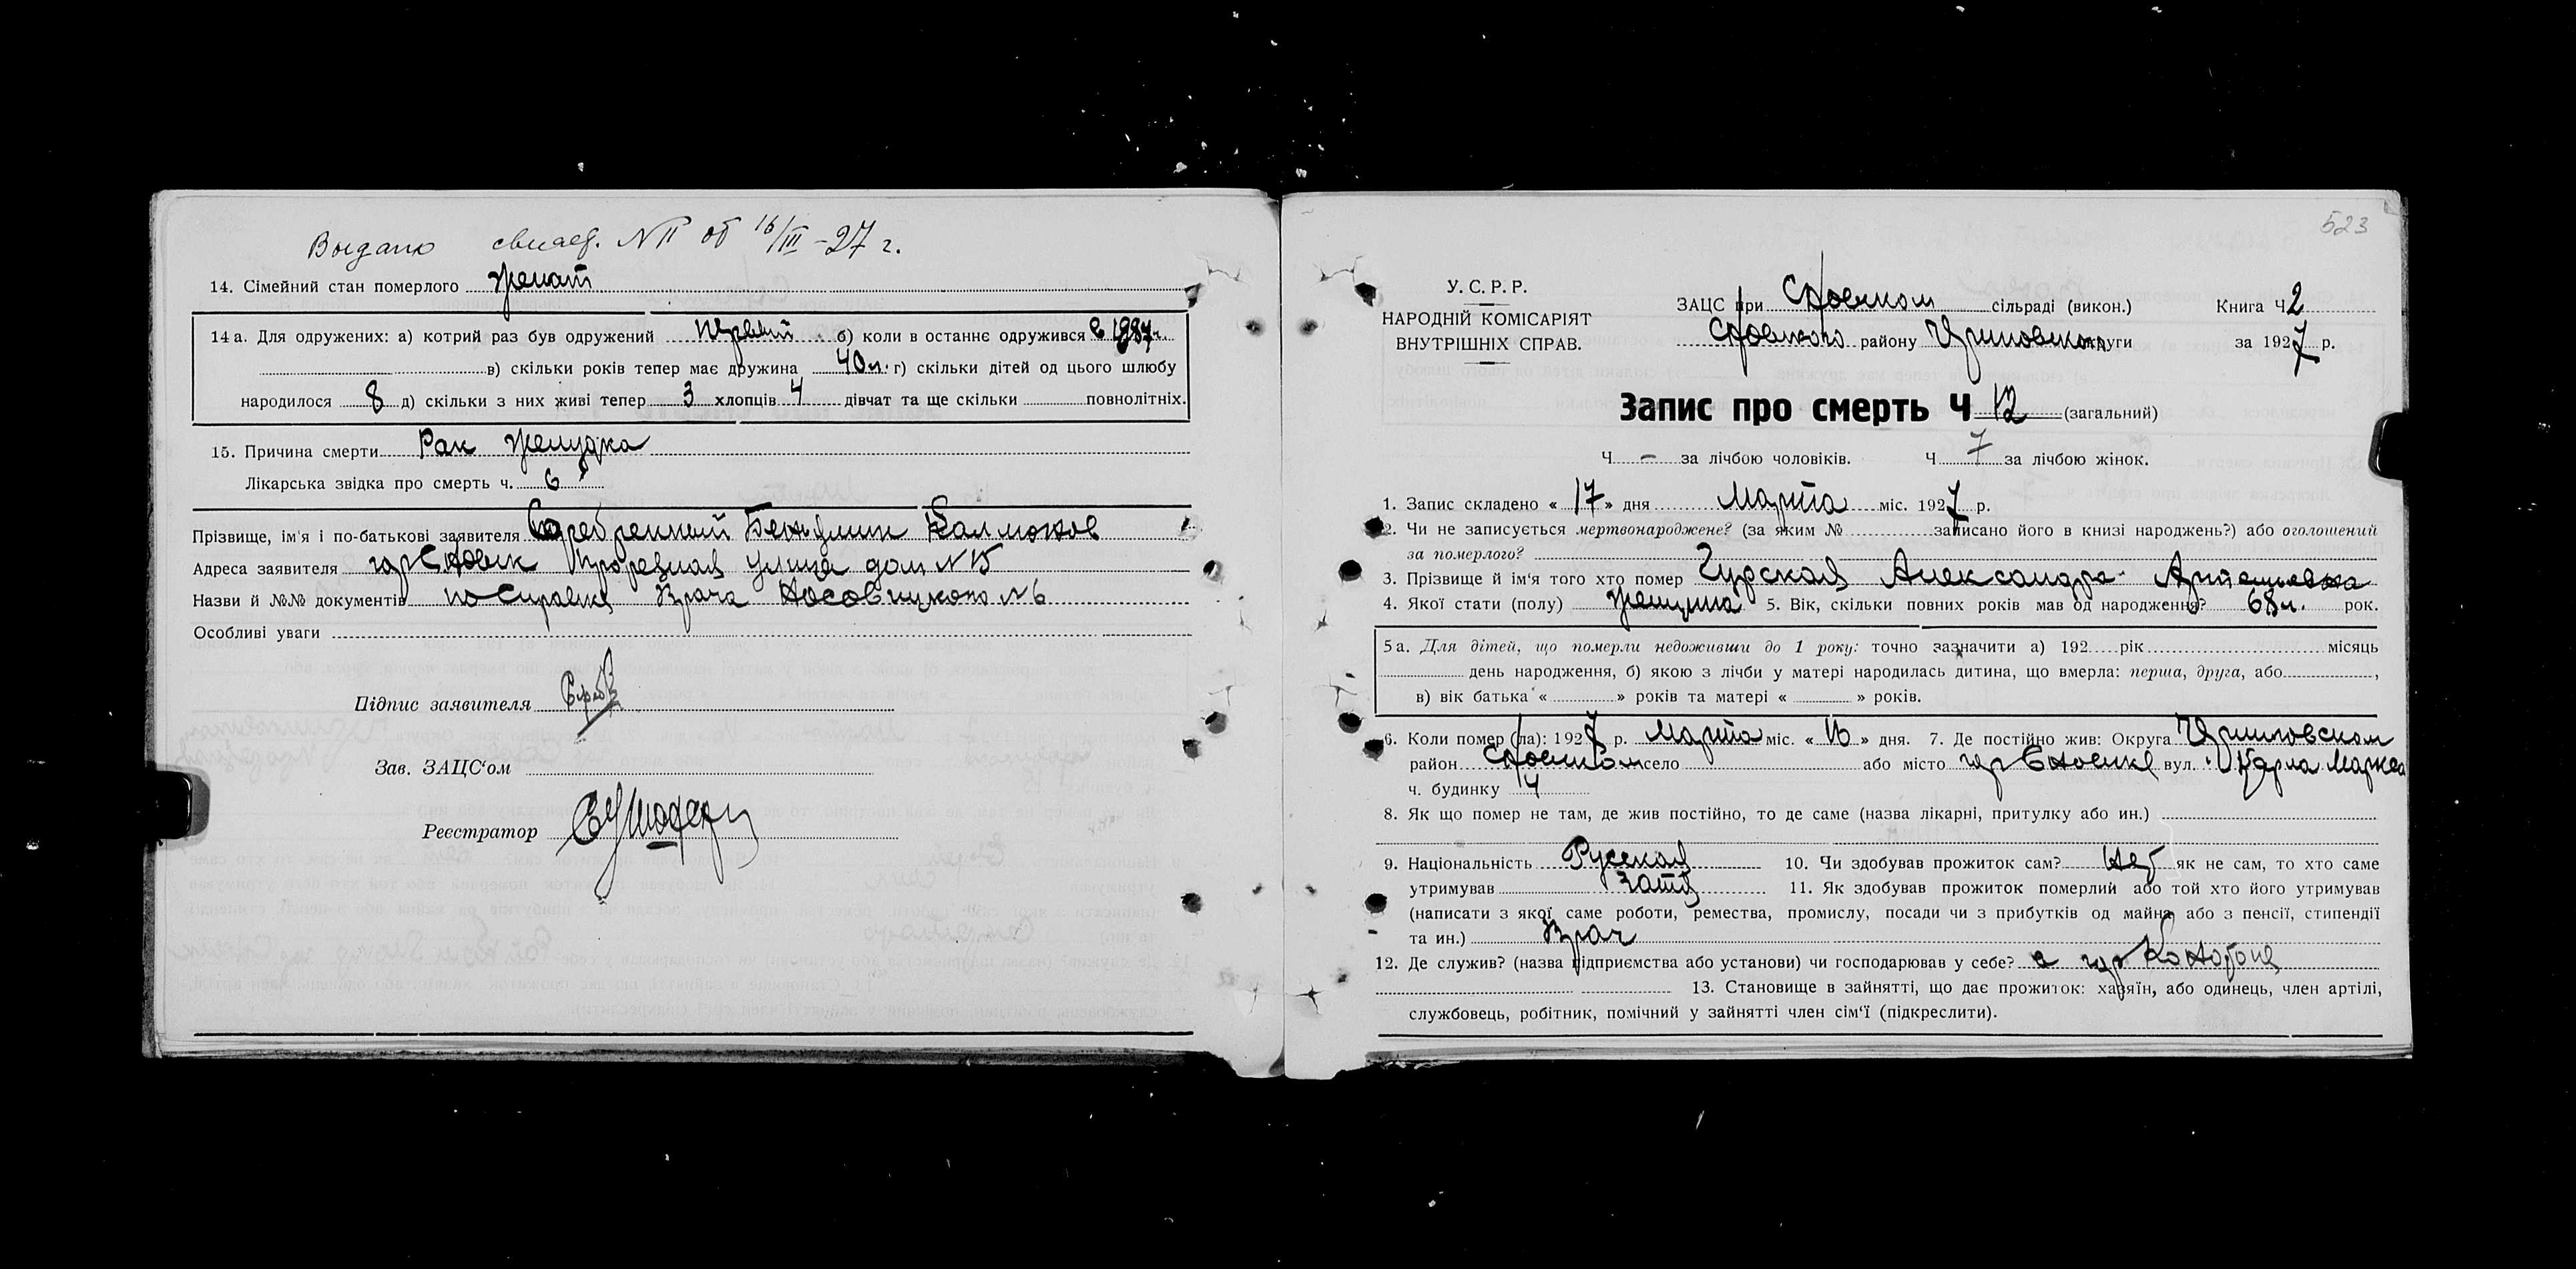 Выдано свидет. № 11 от 16/III-27 г.
14. Сімейний стан померлого женат
14 а. Для одружених: а) котрий раз був одружений первый б) коли в останнє одружився в
в) скільки років тепер має дружина 40 л. г) скільки дітей од цього шлюбу
народилося 8 д) скільки з них живі тепер 3 хлопців 4 дівчат та ще скільки повнолітніх.
15. Причина смерти Рак желудка
Лікарська звідка про смерть ч. 6
Прізвище, ім'я і по-батькові заявителя Серебренный Бенјамин Калмонов
Адреса заявителя гор Сновск Прорезная улица дом № 15
Назви й №№ документів по справке Врача Носовицкого № 6
Особливі уваги
Підпис заявителя
Зав. ЗАЦС'ом
Реєстратор
523
У. С. Р. Р.
НАРОДНІЙ КОМІСАРІЯТ
ВНУТРІШНІХ СПРАВ.
ЗАЦС при Сновском сільраді (викон.) Книга Ч 2
Сновского району округи за 1927 р.
Запис про смерть Ч 12 (загальний)
Ч. – за лічбою чоловіків. Ч 7 за лічбою жінок.
1. Запис складено « 17 » дня Марта міс. 1927 р.
2. Чи не записується мертвонароджене? (за яким № записано його в книзі народжень?) або оголошений
за померлого?
3. Прізвище й ім'я того хто помер Гурская Александра Артемьевна
4. Якої стати (полу) женщина 5. Вік, скільки повних років мав од народження? 68 л. рок.
5 а. Для дітей, що померли недоживши до 1 року: точно зазначити а) 192 рік місяць
день народження, б) якою з лічби у матері народилась дитина, що вмерла: перша, друга, або ,
в) вік батька « » років та матері « » років.
6. Коли помер (ла): 1927 р. Марта міс. « 16 » дня. 7. Де постійно жив: Округа
район Сновском село або місто гор Сновске вул. Карла Маркса
ч. будинку 14
8. Як що помер не там, де жив постійно, то де саме (назва лікарні, притулку або ин.)
9. Національність Русская 10. Чи здобував прожиток сам? нет як не сам, то хто саме
утримував зять 11. Як здобував прожиток померлий або той хто його утримував
(написати з якої саме роботи, ремества, промислу, посади чи з прибутків од майна або з пенсії, стипендії
та ин.) Врач
12. Де служив? (назва підприємства або установи) чи господарював у себе? в гор Конотопе
13. Становище в зайнятті, що дає прожиток: хазяїн, або одинець, член артілі,
службовець, робітник, помічний у зайнятті член сім'ї (підкреслити).